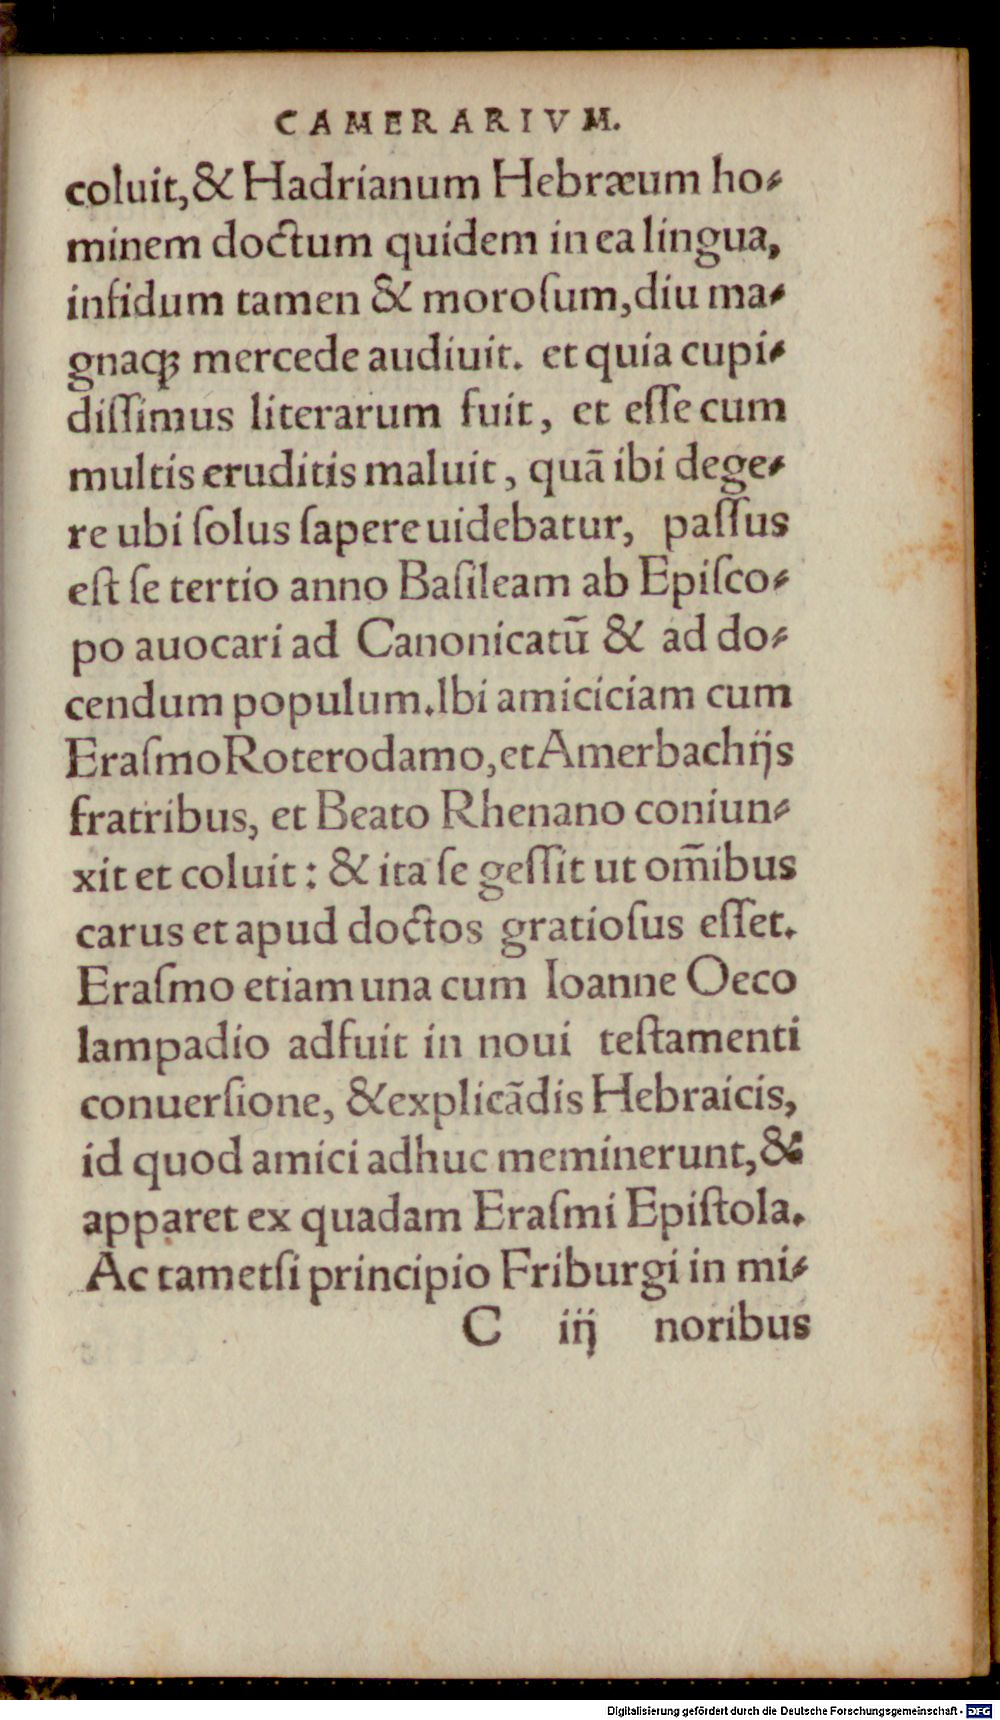 CAMERARIVM.
coluit, & Hadrianum Hebræum ho-
minem doctum quidem in ea lingua,
infidum tamen & moroſum, diu ma-
gnaq; mercede audiuit. et quia cupi-
diſſimus literarum fuit, et eſſe cum
multis eruditis maluit, quā ibi dege-
re ubi ſolus ſapere uidebatur, paſſus
eſt ſe tertio anno Baſileam ab Epiſco-
po auocari ad Canonicatū & ad do-
cendum populum. Ibi amiciciam cum
Eraſmo Roterodamo, et Amerbachijs
fratribus, et Beato Rhenano coniun-
xit et coluit: & ita ſe geſſit ut om̄ibus
carus et apud doctos gratioſus eſſet.
Eraſmo etiam una cum Ioanne Oeco
lampadio adfuit in noui teſtamenti
conuerſione, & explicādis Hebraicis,
id quod amici adhuc meminerunt, &
apparet ex quadam Eraſmi Epiſtola.
Ac tametſi principio Friburgi in mi-
C iij noribus
Digitalisierung gefördert durch die Deutsche Forschungsgemeinschaft - DFG